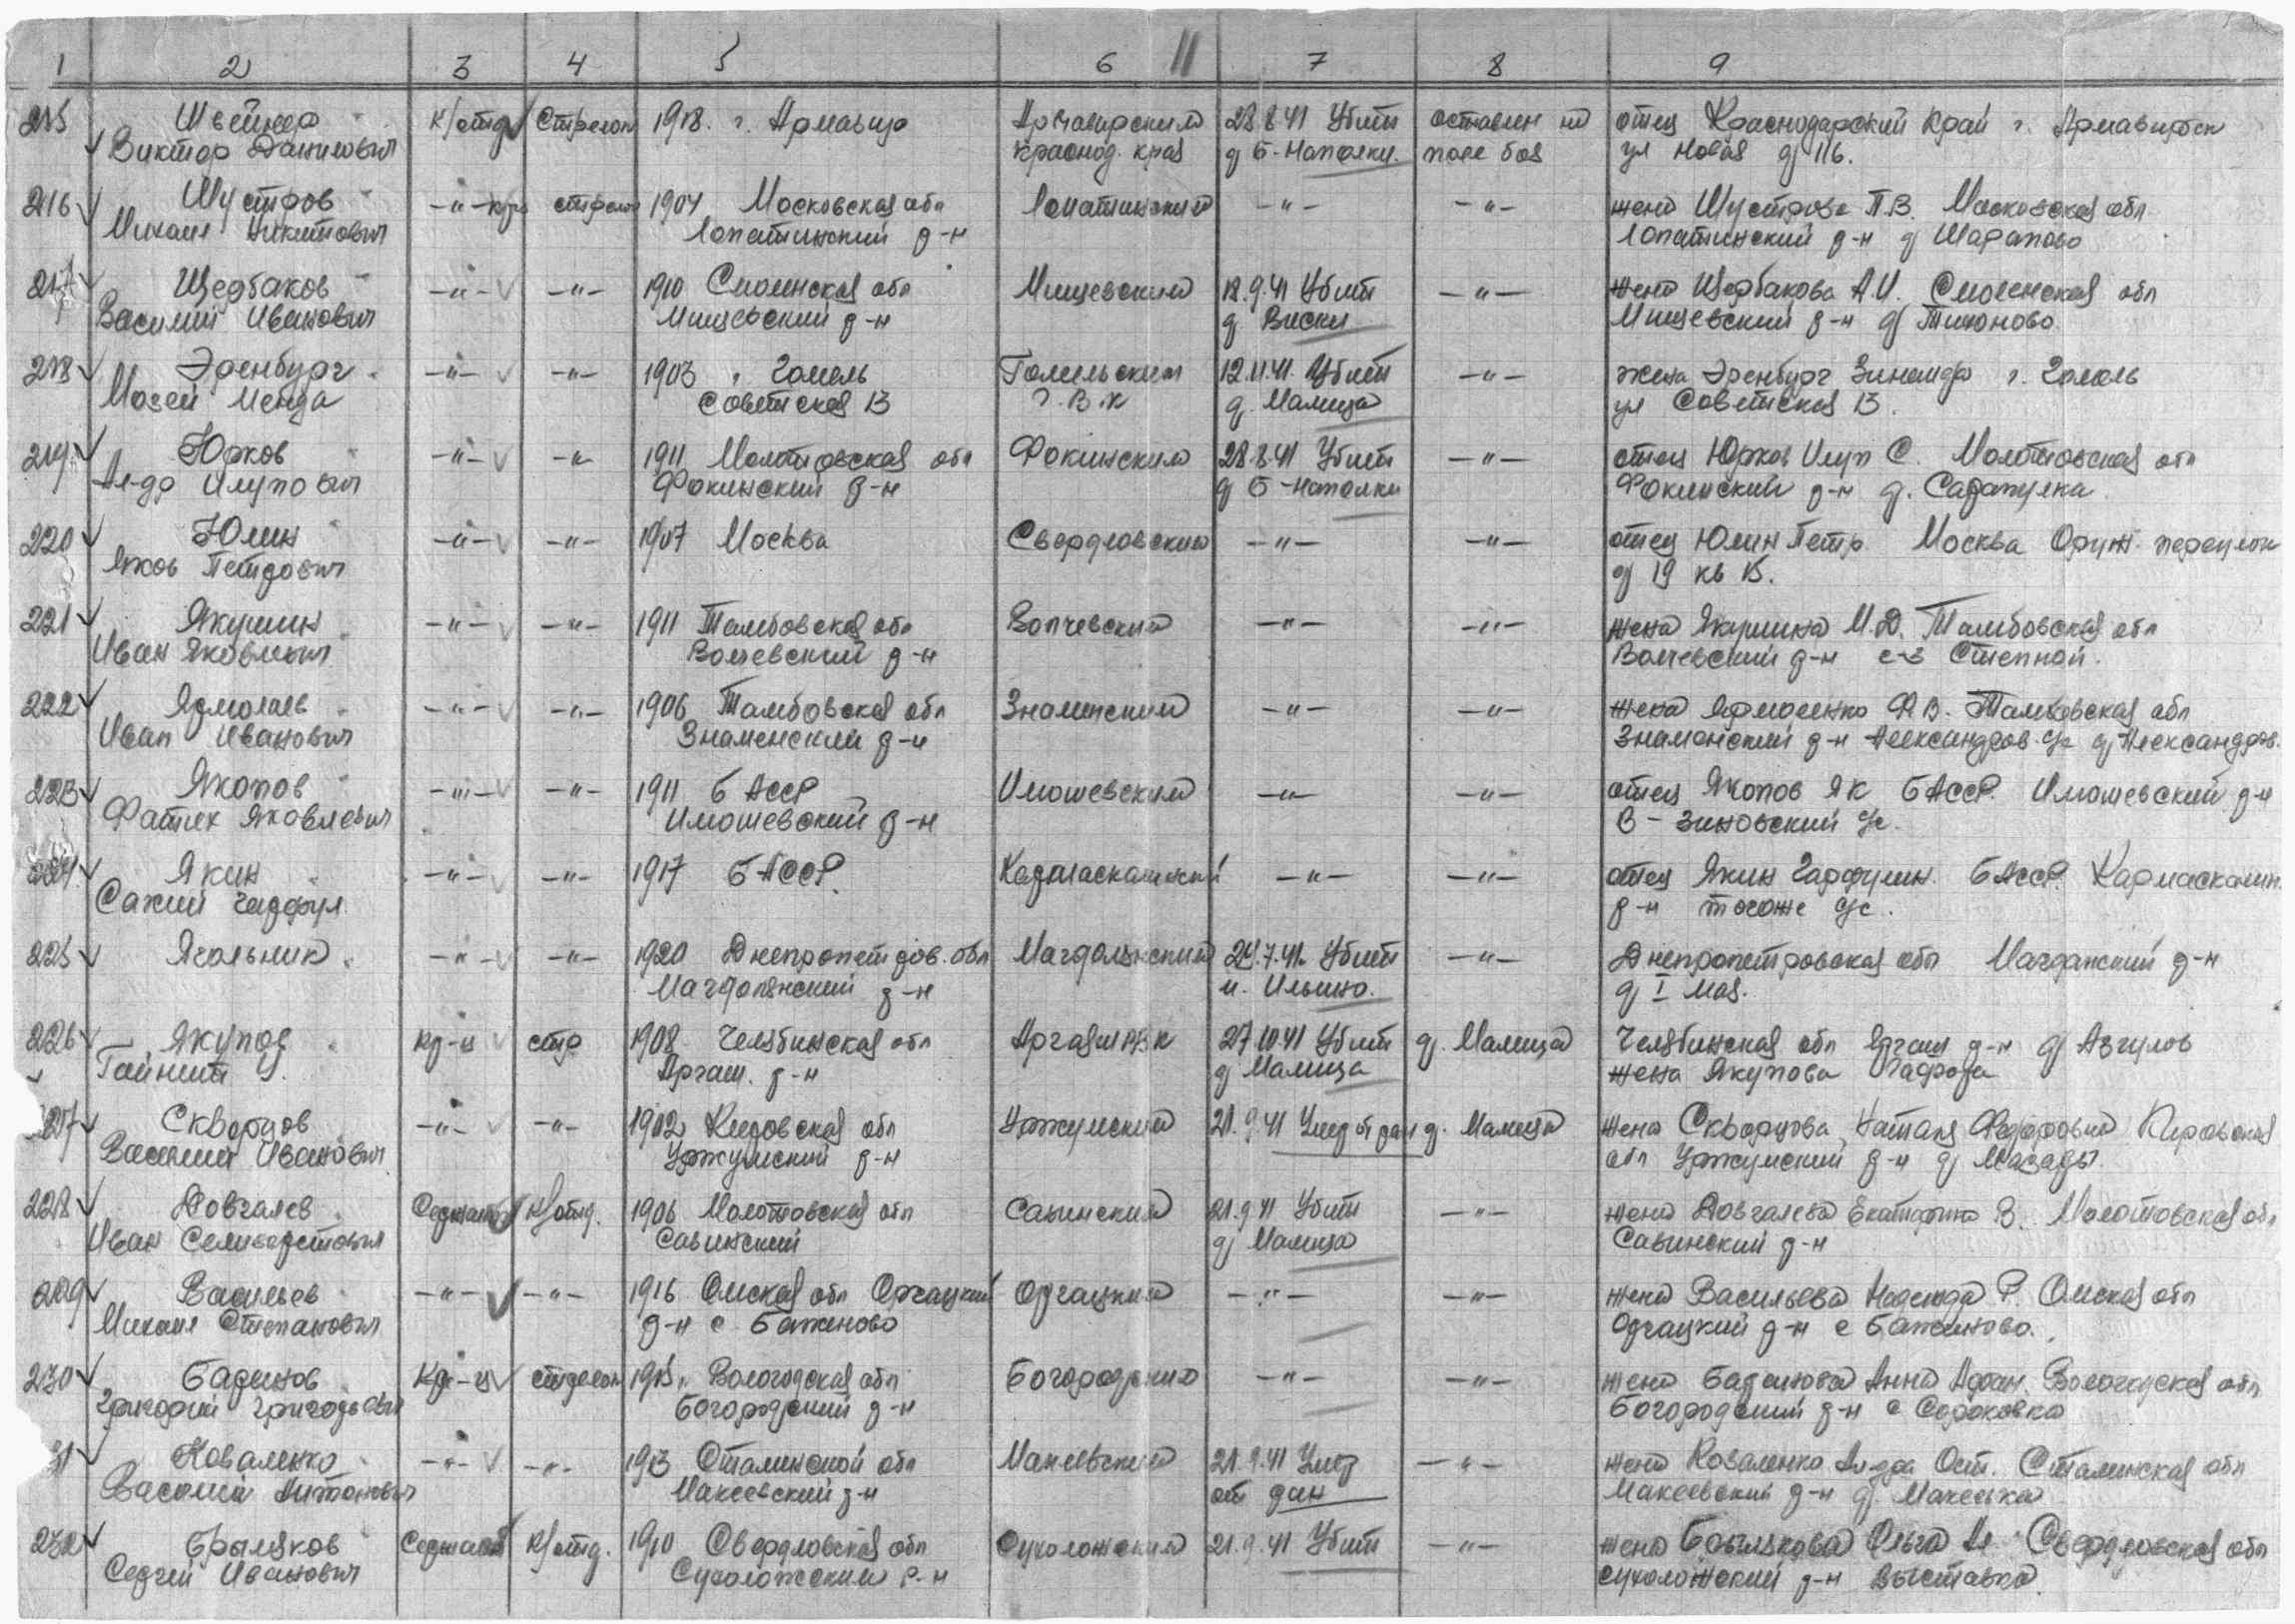 1 2 3 4 5 6 11 7 8 9
215 Швейнер к/отд Стрелок 1918. г. Армавир Армавирским 28.8.41 Убит оставлен на отец Краснодарский край г. Армавирск
Виктор Данилович Краснод. края д Б-Наполки. поле боя ул Новая д 116.
216 Шустров -"- кр стрелок 1904 Московская обл Лопатинский -"- -"- жена Шустрова П.В. Московская обл
Михаил Никитович Лопатинский р-н Лопатинский р-н д Шарапово
217 Щербаков -"- -"- 1910 Смоленская обл Мищевским 18.9.41 Убит -"- жена Щербакова А.И. Смоленская обл
Василий Иванович Мищевский р-н д Виски Мищевский р-н д Тихоново
218 Эренбург -"- -"- 1903 г Гомель Гомельским 12.11.41. Убит -"- жена Эренбург Зинаида г. Гомель
Мозей Менда Советская 13 Г.В.К д. Малица ул Советская 13.
219 Юрков -"- -"- 1911 Молотовская обл Фокинским 28.8.41 Убит -"- отец Юрков Илуп С. Молотовская обл
Ал-др Илупович Фокинский р-н д Б-Наполки Фокинский р-н д. Сарапулка
220 Юлин -"- -"- 1907 Москва Свердловским -"- -"- отец Юлин Петр Москва Оруж. переулок
Яков Петрович д 19 кв 15.
221 Якушин -"- -"- 1911 Тамбовская обл Волчевский -"- -"- жена Якушина М.Д. Тамбовская обл
Иван Яковлевич Волчевский р-н Волчевский р-н с-з Степной.
222 Ярмолаев -"- -"- 1906 Тамбовская обл Знаменский -"- -"- жена Ярмоленко Ф.В. Тамбовская обл
Иван Иванович Знаменский р-н Знаменский р-н Александров с/с д Александров.
223 Якопов -"- -"- 1911 БАССР Имошевским -"- -"- отец Якопов Як БАССР. Имошевский р-н
Фатих Яковлевич Имошевский р-н В-Зиновский с/с.
224 Якин -"- -"- 1917 БАССР. Кармаскалинский -"- -"- отец Якин Гарфулин. БАССР. Кармаскалин.
Сахий Гарфул р-н тогоже с/с.
225 Ягольник -"- -"- 1920 Днепропетров. обл Магдалинский 24.7.41. Убит -"- Днепропетровская обл Магданский р-н
Магдолянский р-н и. Ильино. д I мая.
226 Якупов кр-ц стр 1908 Челябинская обл Аргаяш РВК 27.10.41 Убит д. Малица Челябинская обл Аргаш р-н д Азгулов
Гайнит И. Аргаш. р-н д Малица жена Якупова
227 Скворцов -"- -"- 1902 Кировская обл Уржумский 21.9.41 Умер от ран д. Малица жена Скворцова Кировская
Василий Иванович Уржумский р-н обл Уржумский р-н д Мазары
228 Довгалев Сержант К/отд. 1906 Молотовская обл Савинский 21.9.41 Убит -"- жена Довгалева Екатерина В. Молотовская обл
Иван Селиверстович Савинский д Малица Савинский р-н
229 Васильев -"- -"- 1916 Омская обл Оргацкий Оргацкий -"- -"- жена Васильева Надежда Р. Омская обл
Михаил Степанович р-н с. Баженово Оргацкий р-н с Баженово.
230 Баринов Кр-ц стрелок 1915 Вологодская обл Богородский -"- -"- жена Баринова Анна Афан. Вологодская обл
Григорий Григорьевич Богородский р-н Богородский р-н с Сороковка
31 Коваленко -"- -"- 1913 Сталинской обл Макеевский 21.9.41 Умер -"- жена Коваленко Ост. Сталинская обл
Василий Антонович Макеевский р-н от ран Макеевский р-н д. Макеевка
232 Брыляков Сержант К/отд. 1910 Свердловская обл Сухоложский 21.9.41 Убит -"- жена Брылякова Ольга Ал. Свердловская обл
Сергей Иванович Сухоложский р-н Сухоложский р-н Выставка